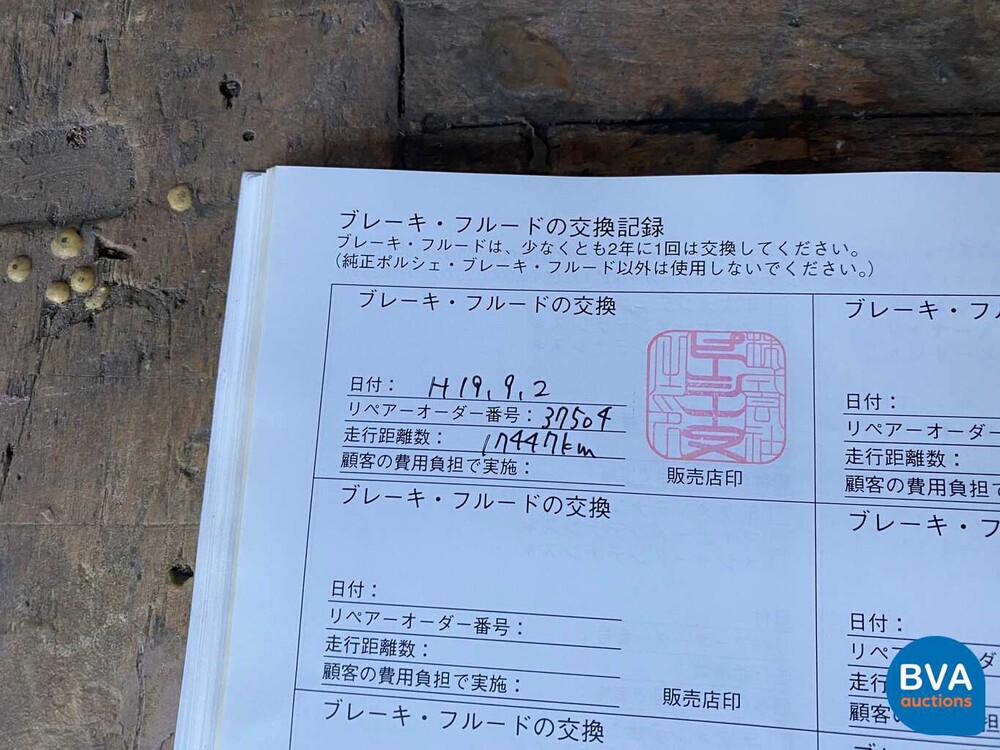 ブレーキ・フルードの交換記録
ブレーキ・フルードは、少なくとも2年に1回は交換してください。
（純正ポルシェ・ブレーキ・フルード以外は使用しないでください。）
ブレーキ・フルードの交換
日付： H19.9.2
リペアーオーダー番号：37504
走行距離数： 17447km
顧客の費用負担で実施：
販売店印
ブレーキ・フ
日付：
リペアーオーダー
走行距離数：
顧客の費用負担で
ブレーキ・フルードの交換
日付：
リペアーオーダー番号：
走行距離数：
顧客の費用負担で実施：
販売店印
ブレーキ・フ
日付：
リペ
走行
顧客
ブレーキ・フルードの交換
BVA
auctions